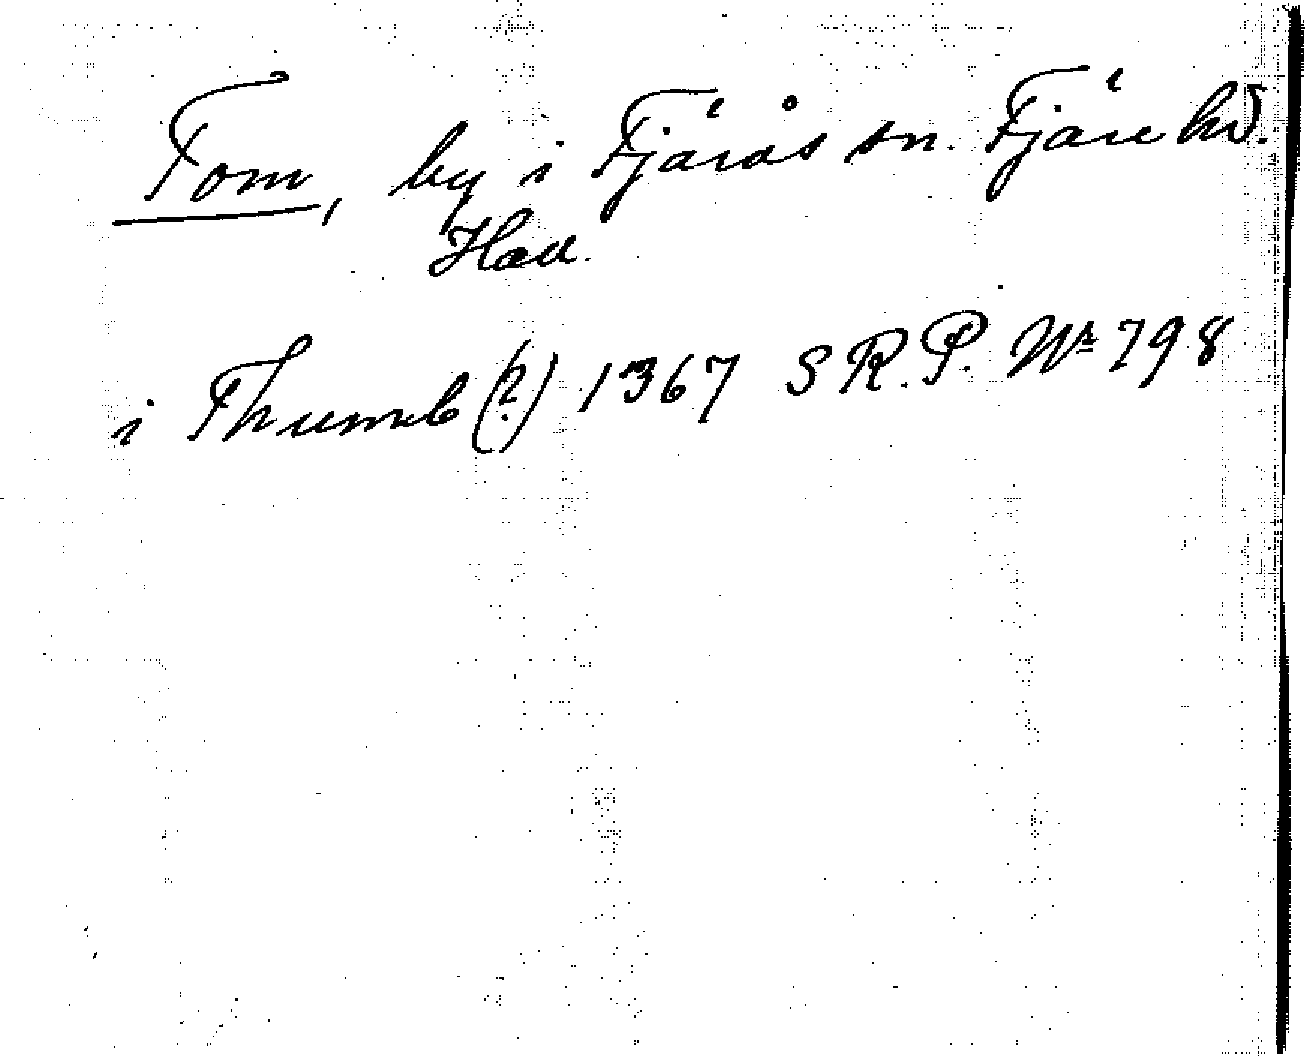 Tom, by i Fjärås sn. Fjäre hd.
Hall.
i Thumb (?) 1367 S R. P. Nr 798